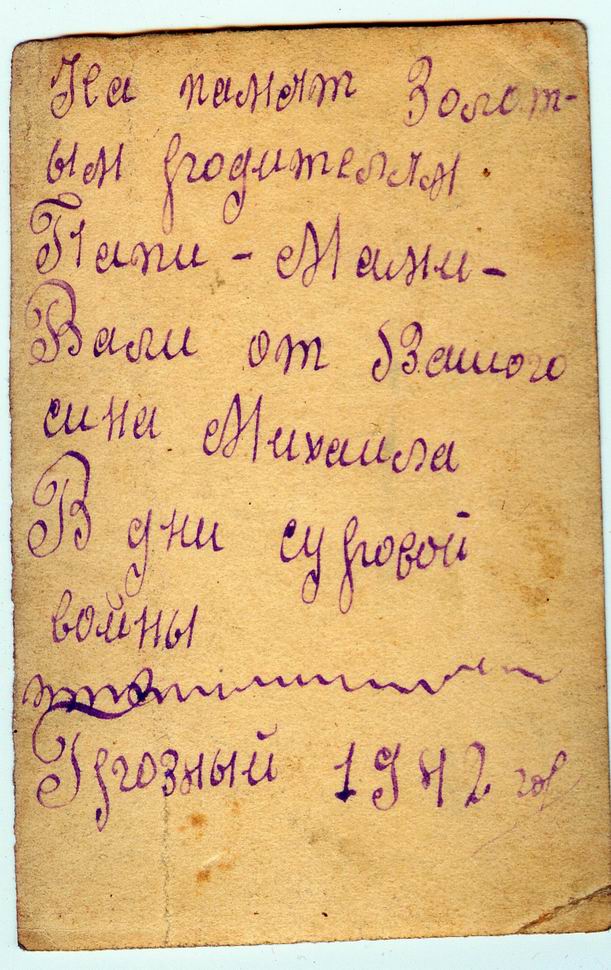 На памят Золот-
ым родителям
Папи - Мами -
Вали от Вашого
сина Михаила
В дни суровой
войны
Грозный 1942 год